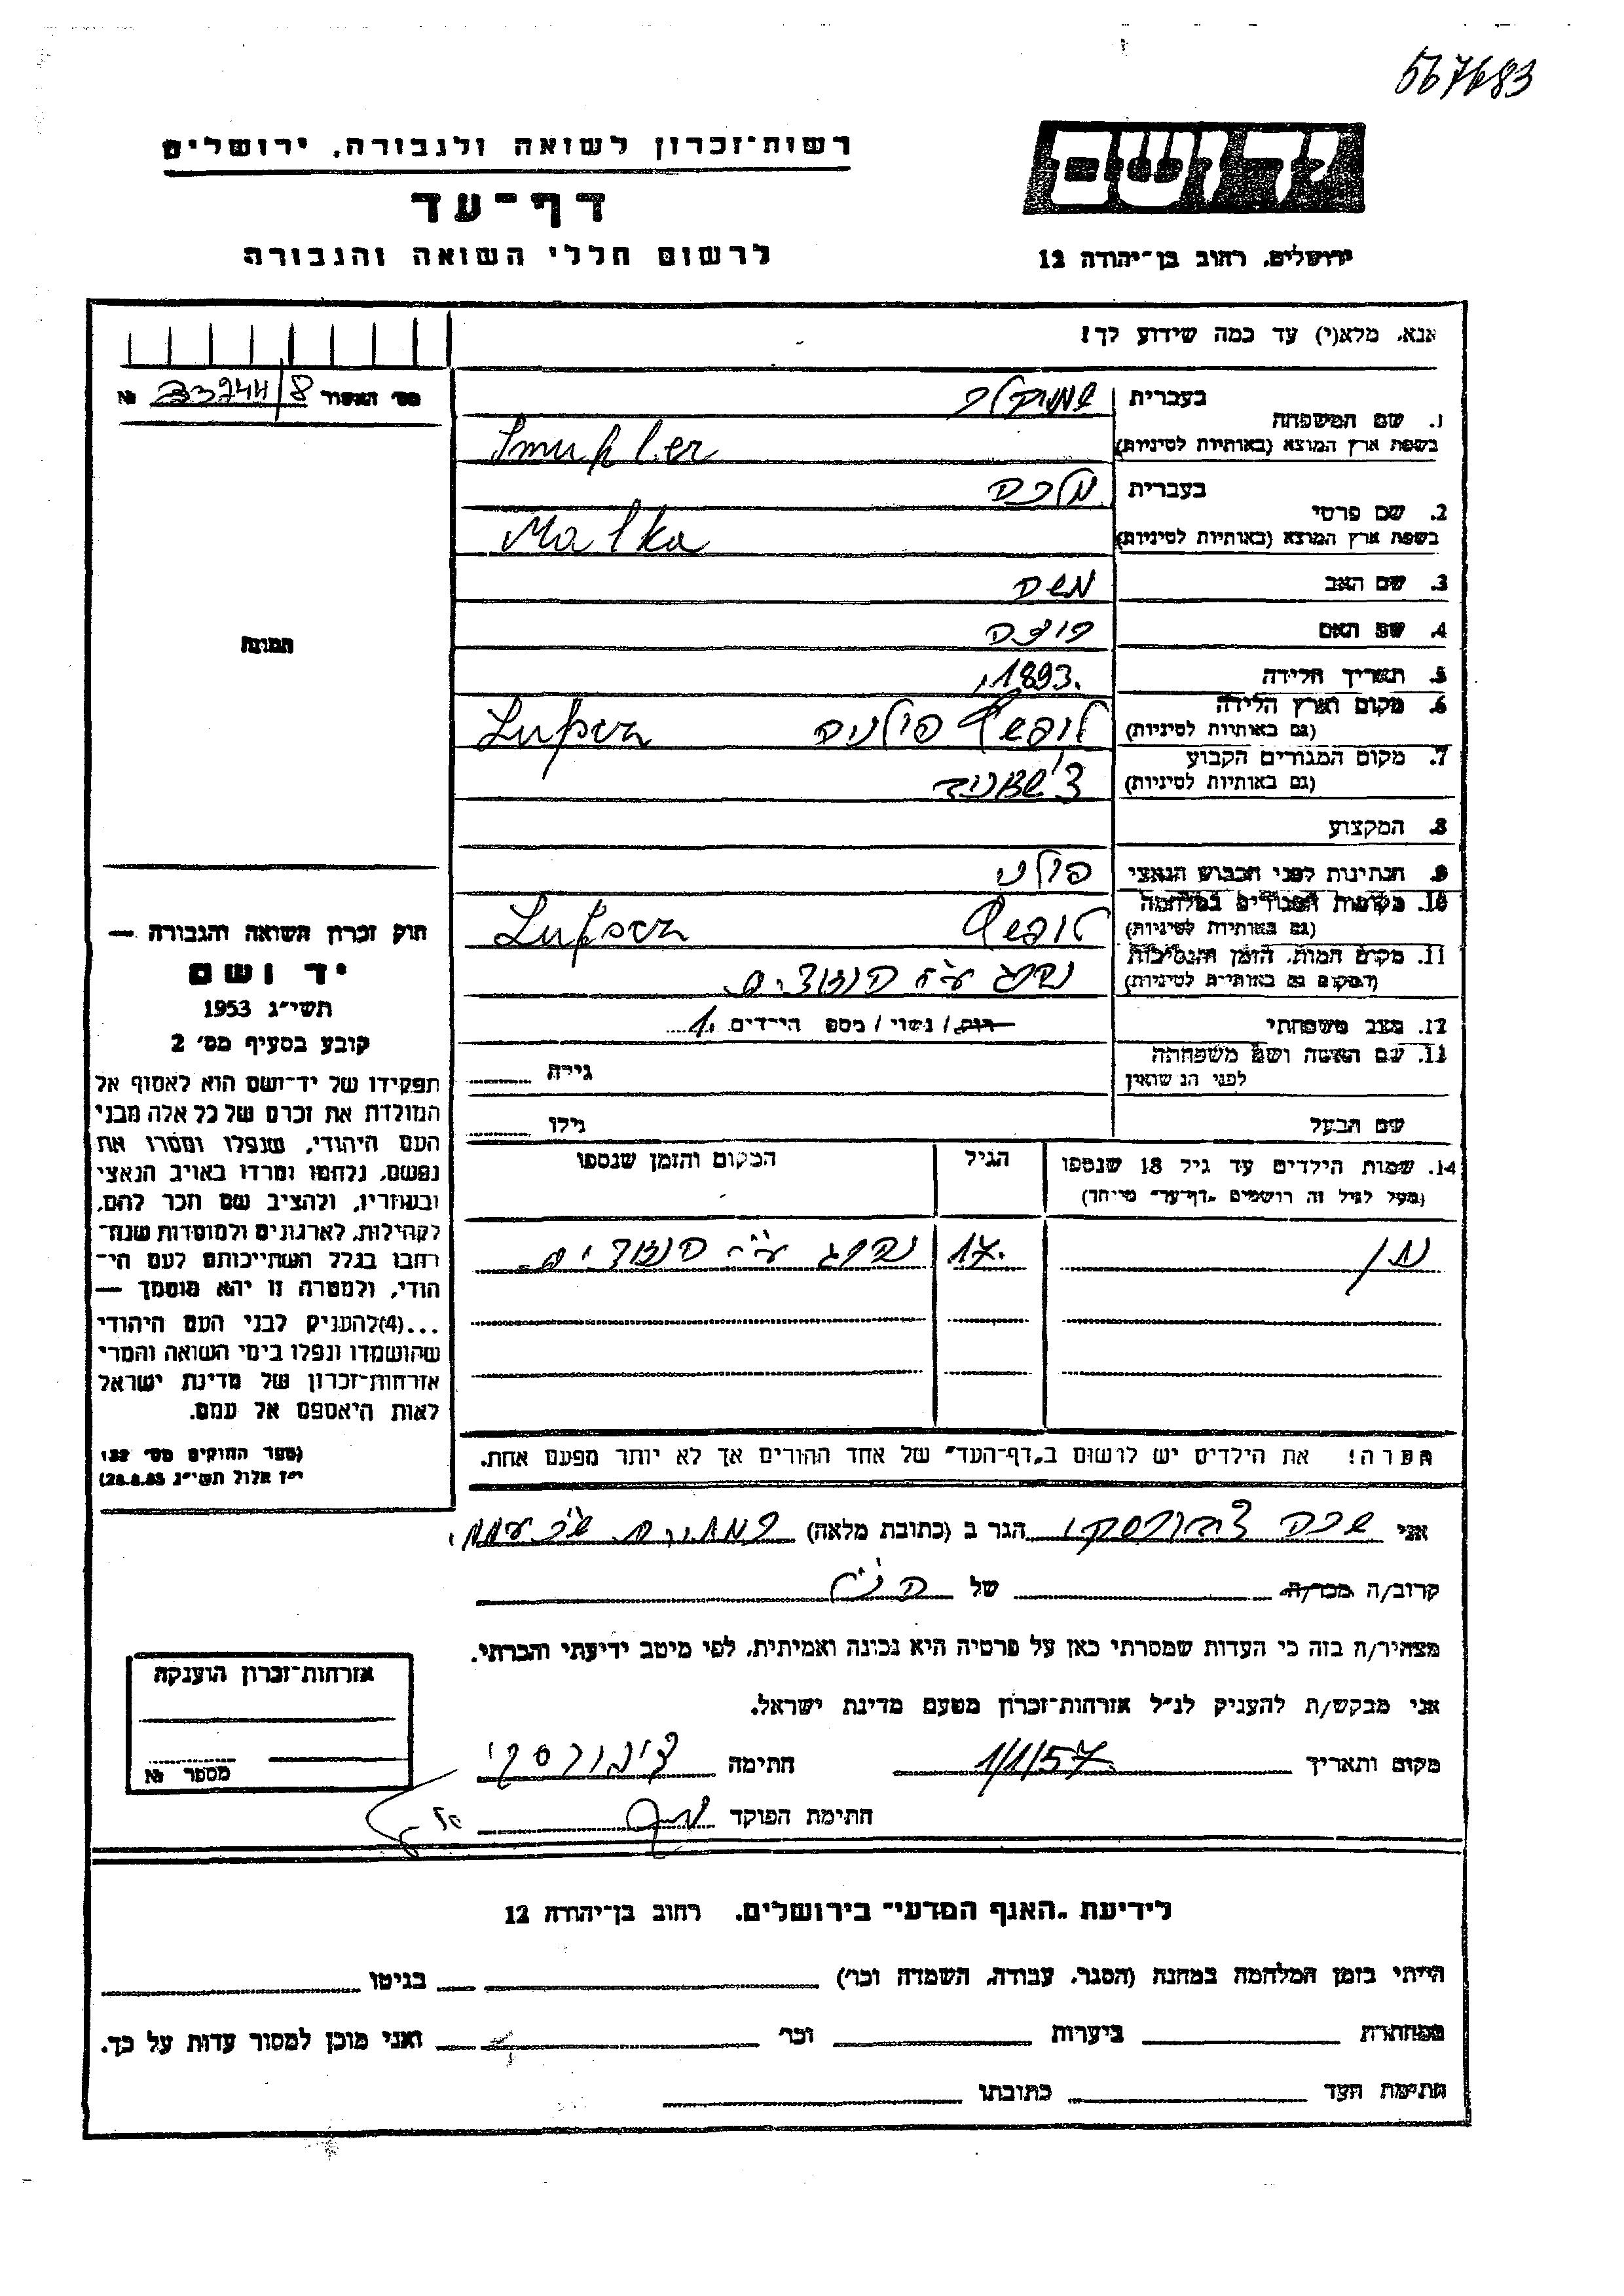 567683
רשות־זכרון לשואה ולגבורה, ירושלים
דף־עד
לרשום חללי השואה והגבורה
יד ושם
ירושלים, רחוב בן־יהודה 12
אנא, מלא(י) עד כמה שידוע לך!
מס׳ האשור 8/ №
1. שם המשפחה
בעברית שמוקלר
בשפת ארץ המוצא (באותיות לטיניות) Smukler
2. שם פרטי
בעברית מלכה
בשפת ארץ המוצא (באותיות לטיניות) Malka
3. שם האב משה
4. שם האם
5. תאריך הלידה 1893.
6. מקום וארץ הלידה
(גם באותיות לטיניות) פולניה
7. מקום המגורים הקבוע
(גם באותיות לטיניות)
8. המקצוע
9. הנתינות לפני הכבוש הנאצי פולני
10. מקומות המגורים במלחמה
(גם באותיות לטיניות)
11. מקום המות, הזמן והנסיבות
(המקום גם באותיות לטיניות) נהרג ע״י הנאצים.
12. מצב משפחתי רוק/נשוי/מספ הילדים 1.
13. שם האשה ושם משפחתה
לפני הנישואין
גילה
שם הבעל
גילו
14. שמות הילדים עד גיל 18 שנספו
(מעל לגיל זה רושמים „דף־עד״ מיוחד)
הגיל
המקום והזמן שנספו
17. נהרג ע״י הנאצים.
הערה! את הילדים יש לרשום ב„דף־העד״ של אחד ההורים אך לא יותר מפעם אחת.
תמונה
חוק זכרון השואה והגבורה —
יד ושם
תשי״ג 1953
קובע בסעיף מס׳ 2
תפקידו של יד־ושם הוא לאסוף אל
המולדת את זכרם של כל אלה מבני
העם היהודי, שנפלו ומסרו את
נפשם, נלחמו ומרדו באויב הנאצי
ובעוזריו, ולהציב שם וזכר להם,
לקהילות, לארגונים ולמוסדות שנח־
רבו בגלל השתייכותם לעם הי־
הודי, ולמטרה זו יהא מוסמך —
...(4)להעניק לבני העם היהודי
שהושמדו ונפלו בימי השואה והמרי
אזרחות־זכרון של מדינת ישראל
לאות היאספם אל עמם.
(ספר החוקים מס׳ 132
י״ז אלול תשי״ג 28.8.53)
אני הגר ב (כתובת מלאה)
קרוב/ה מכר/ה של הנ״ל
מצהיר/ה בזה כי העדות שמסרתי כאן על פרטיה היא נכונה ואמיתית, לפי מיטב ידיעתי והכרתי.
אני מבקש/ת להעניק לנ״ל אזרחות־זכרון מטעם מדינת ישראל.
מקום ותאריך 1/1/57 חתימה
חתימת הפוקד
אזרחות־זכרון הוענקה
מספר №
לידיעת „האגף המדעי״ בירושלים, רחוב בן־יהודה 12
הייתי בזמן המלחמה במחנה (הסגר, עבודה, השמדה וכו׳) בגיטו
במחתרת ביערות וכו׳ ואני מוכן למסור עדות על כך.
חתימת העד כתובתו